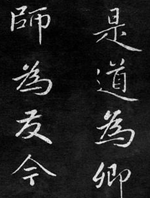 是道為卿
師為友今